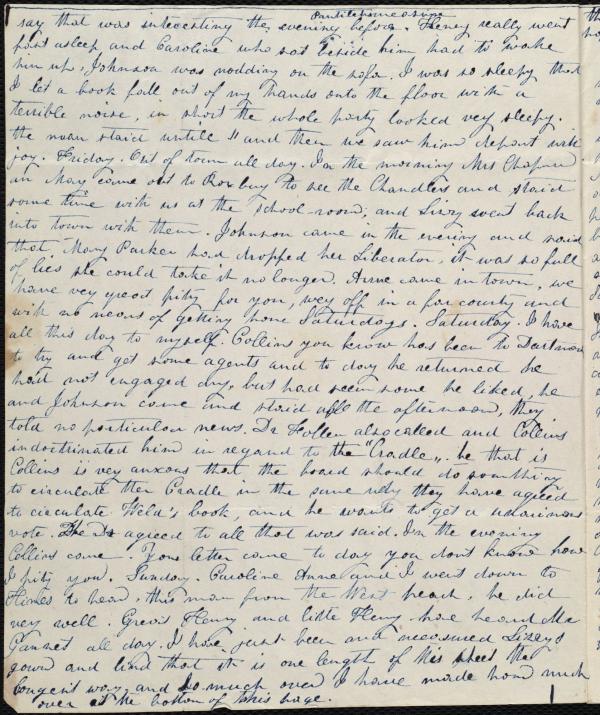 say that was interesting the evening before. Henry really went
fast asleep and Caroline who sat beside him had to wake
him up, Johnson was nodding on the sofa. I was so sleepy that
I let a book fall out of my hands onto the floor with a
terrible noise, in short the whole party looked very sleepy.
the man staid untill 11 and then we saw him depart with
joy. Friday. Out of town all day. In the morning Mrs Chapman
an Mary came out to Roxbury to see the Chandlers and staid
some time with us at the school-room, and Lizzy went back
into town with them. Johnson came in the evening and said
that Mary Parker had dropped her Liberator, it was so full
of lies she could take it no longer. Anne came in town, we
have very great pity for you, way off in a far country and
with no means of getting home Saturdays. Saturday. I have
all this day to myself. Collins you know has been to Dartmouth
to try and get some agents and to day he returned he
had not engaged any, but had seen some he liked, he
and Johnson came and staid all the afternoon, they
told no particular news. Dr Follen also called and Collins
indoctrinated him in regard to the "Cradle", he that is
Collins is very anxous that the board should do something
to circulate the Cradle in the same way they have agreed
to circulate Weld's book, and he wants to get a unanimous
vote. The Dr agreed to all that was said. In the evening
Collins came. Your letter came to day you dont know how
I pity you. Sunday. Caroline Anne and I went down to
Himes to hear this man from the West preach he did
very well. Great Henry and little Henry have heard Mr
Gannet all day. I have just been and measured Lizzys
gown and find that it is one length of this sheet the
longest way, and so much over I have made how much
over at the bottom of this page.